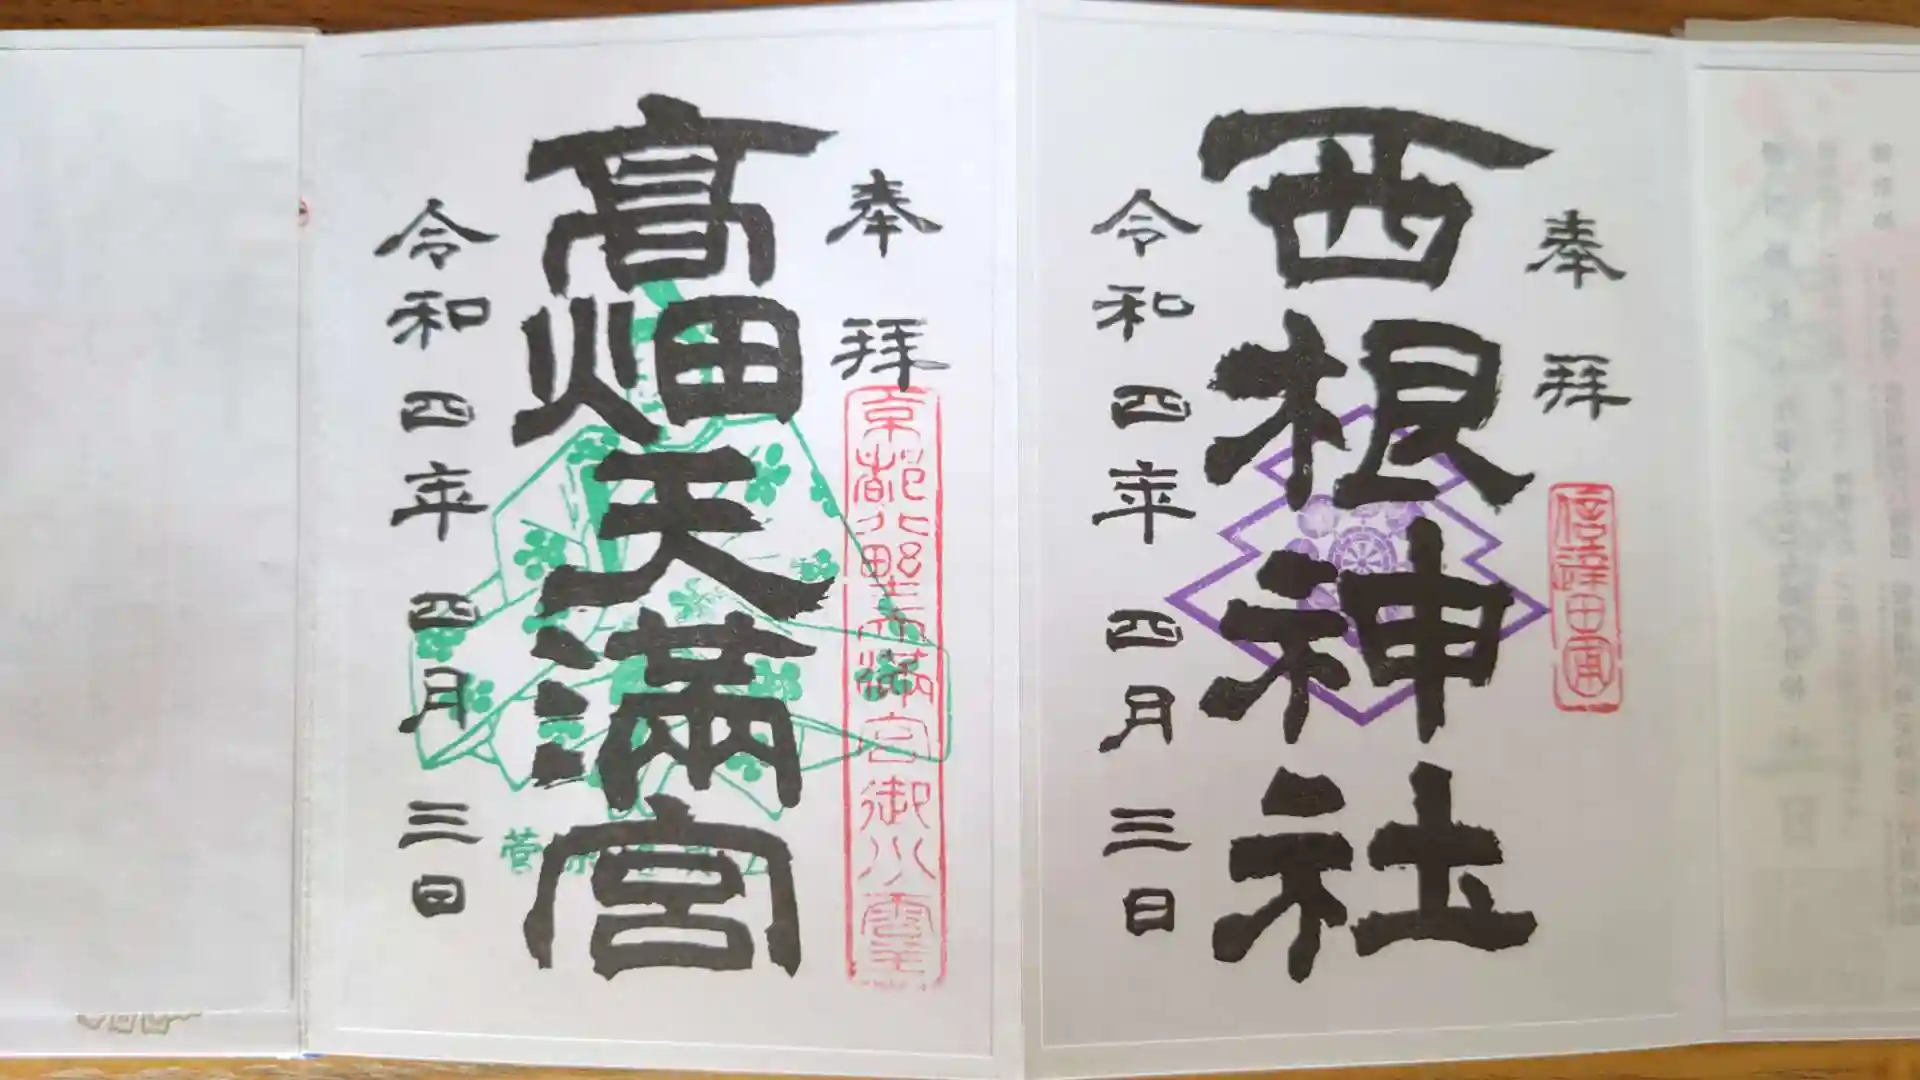 奉拝
信達田甫
西根神社
令和四年四月三日
奉拝
京都北野天満宮御分霊
高畑天満宮
令和四年四月三日